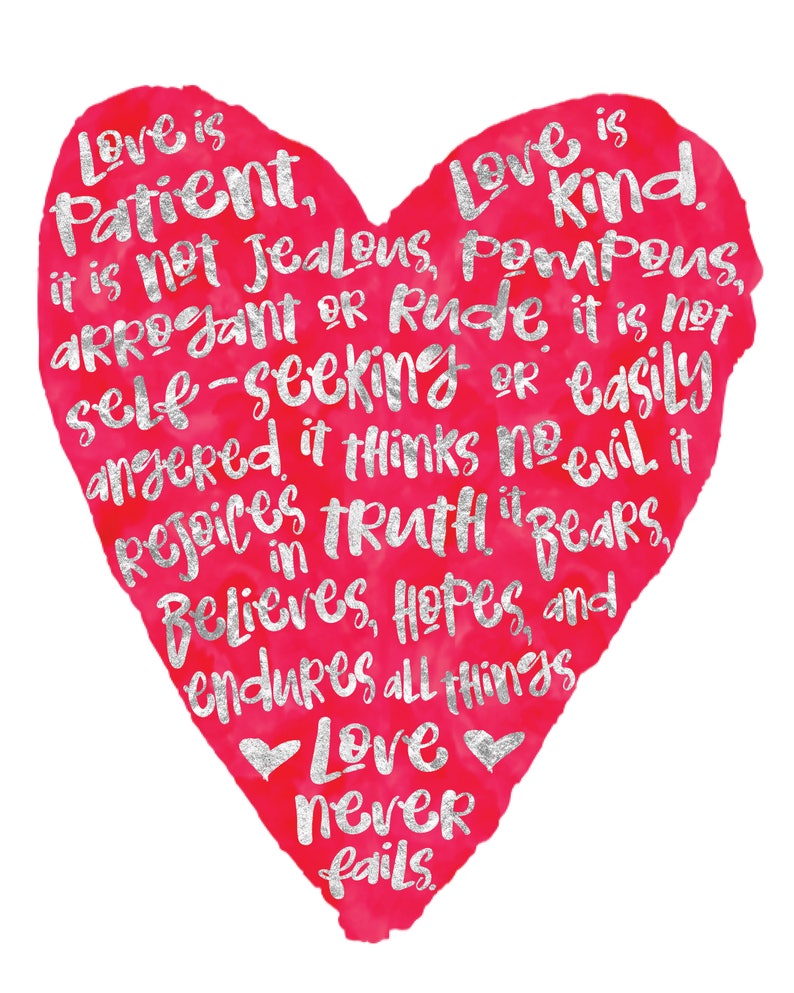 Love is Love is
Patient, kind.
it is not jealous, pompous,
arrogant or rude. it is not
self-seeking or easily
angered. it thinks no evil. it
rejoices in truth. it bears,
believes, hopes, and
endures all things
Love
never
fails.